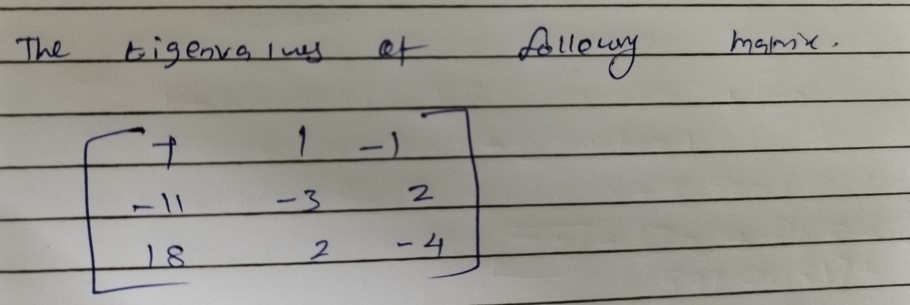 The Eigenvalues of following matrix.
7 1 -1
-11 -3 2
18 2 -4